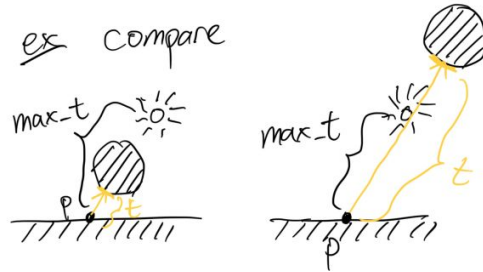 ex compare
max_t
p
t
max_t
t
p